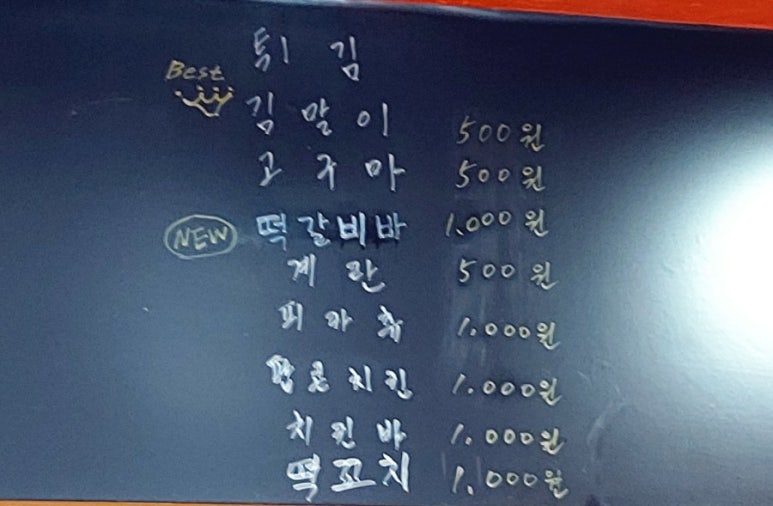 튀 김
Best
김 말 이 500원
고 구 마 500원
NEW 떡갈비바 1.000원
계 란 500원
피 카 츄 1.000원
팝콘치킨 1.000원
치 킨 바 1.000원
떡꼬치 1.000원